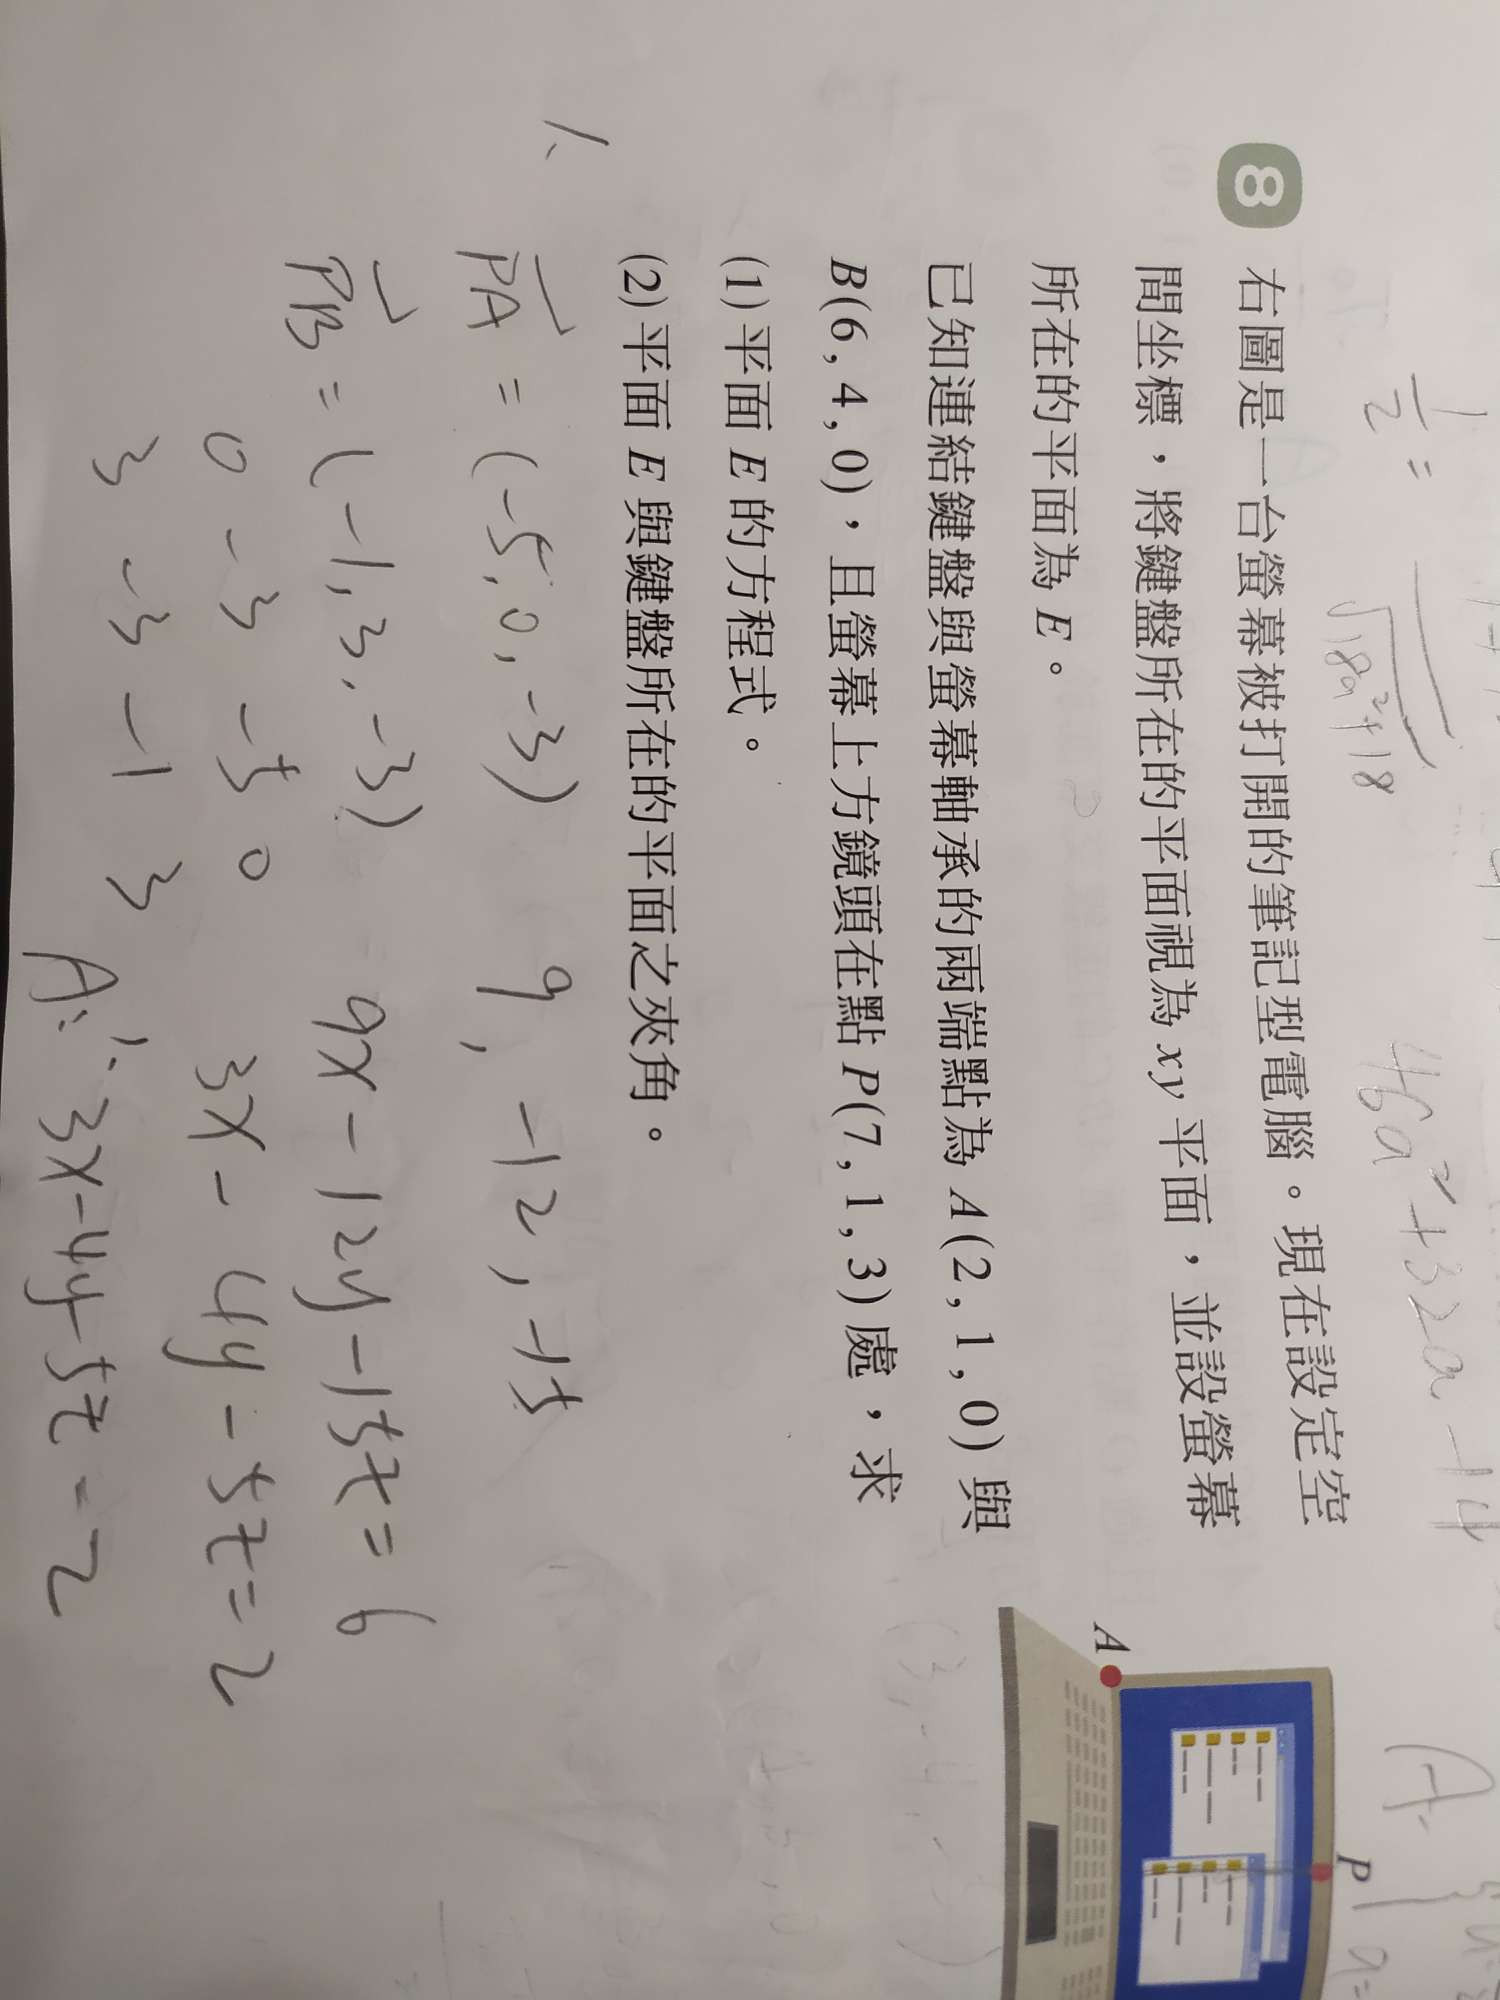 1/2 = ——— √18a²+18
46a²+32a-14
A.
8 右圖是一台螢幕被打開的筆記型電腦。現在設定空
間坐標,將鍵盤所在的平面視為 xy 平面,並設螢幕
所在的平面為 E。
已知連結鍵盤與螢幕軸承的兩端點為 A(2,1,0) 與
B(6,4,0),且螢幕上方鏡頭在點 P(7,1,3) 處,求
(1) 平面 E 的方程式。
(2) 平面 E 與鍵盤所在的平面之夾角。
A
P
1.
PA = (-5,0,-3) 9, -12, -15
PB = (-1,3,-3) 9x-12y-15z=6
0 -3 -5 0 3x-4y-5z=2
3 -3 -1 3
A: 1. 3x-4y-5z=2